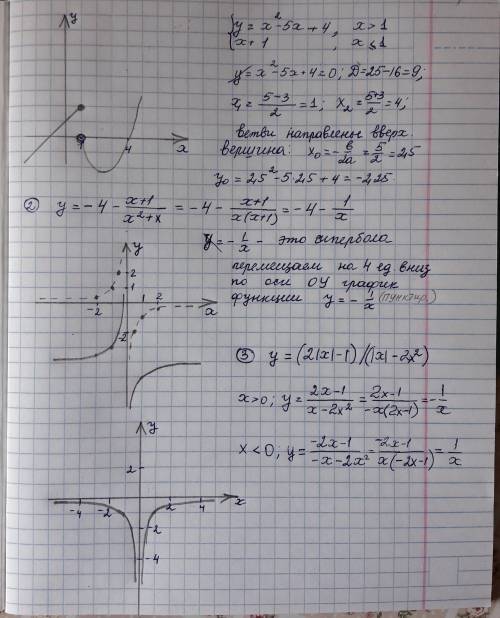 y
1
4
x
{y = x²-5x+4, x>1
x+1, x≤1
y = x²-5x+4=0; D=25-16=9;
x₁ = (5-3)/2 = 1; x₂ = (5+3)/2 = 4;
ветви направлены вверх.
вершина: x₀ = -b/2a = 5/2 = 2,5
y₀ = 2,5² - 5·2,5 + 4 = -2,25
② y = -4 - (x+1)/(x²+x) = -4 - (x+1)/(x(x+1)) = -4 - 1/x
y = -1/x - это гипербола
перемещаем на 4 ед. вниз
по оси ОУ график
функции y = -1/x (пунктир.)
y
2
1
-2
2
x
-2
③ y = (2|x|-1)/(|x|-2x²)
x>0; y = (2x-1)/(x-2x²) = (2x-1)/(-x(2x-1)) = -1/x
x<0; y = (-2x-1)/(-x-2x²) = (-2x-1)/(x(-2x-1)) = 1/x
y
2
-4
-2
2
4
x
-2
-4